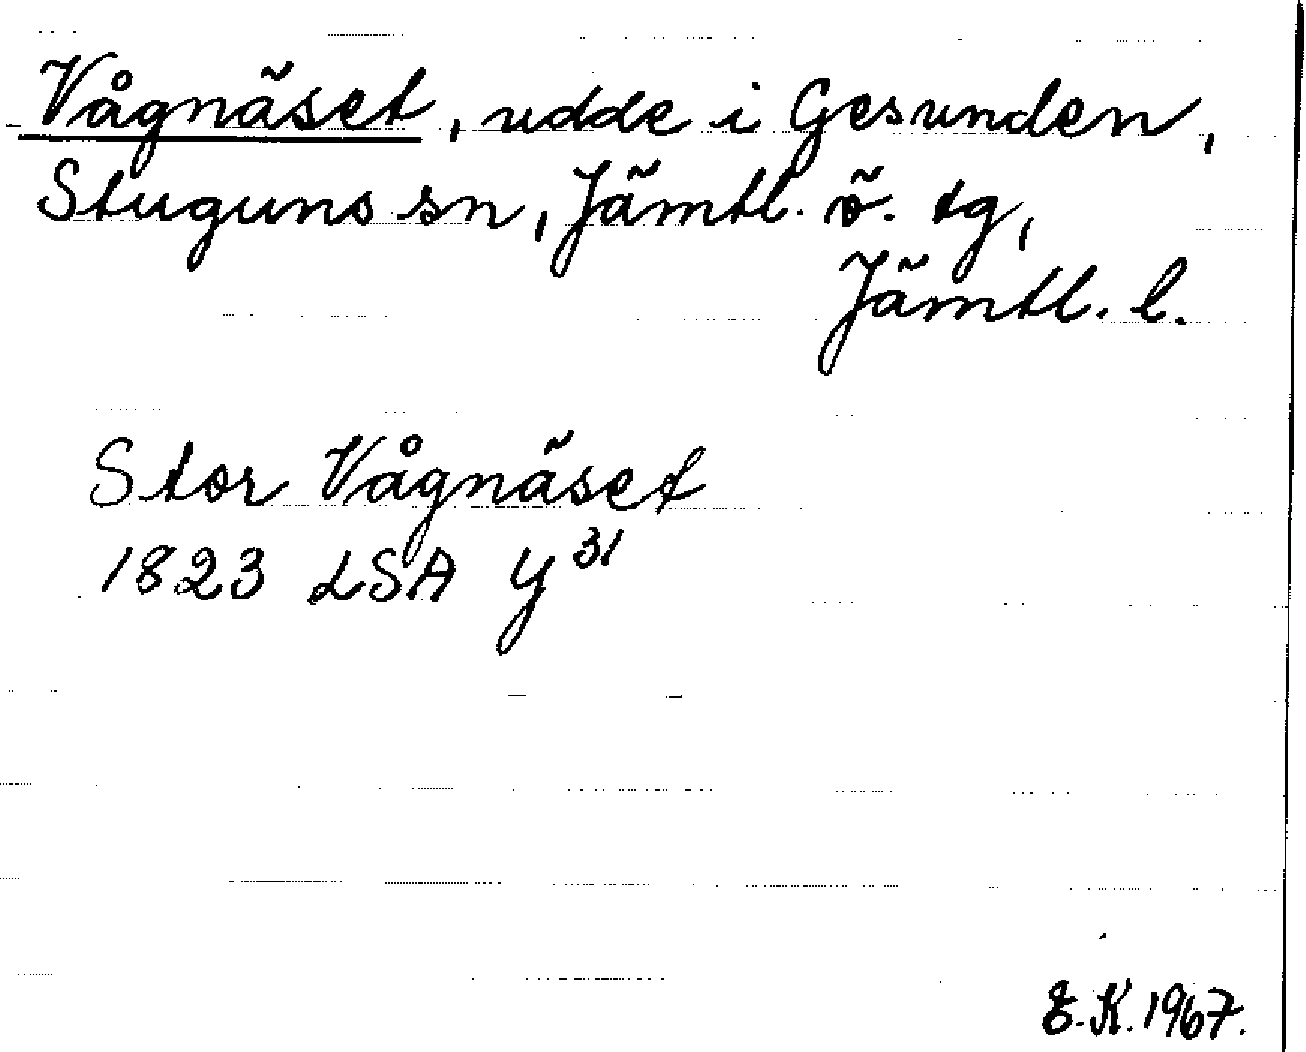 Vågnäset, udde i Gesunden,
Stuguns sn, Jämtl. ö. tg,
Jämtl. l.
Stor Vågnäset
1823 LSA Y 31
E.K. 1967.